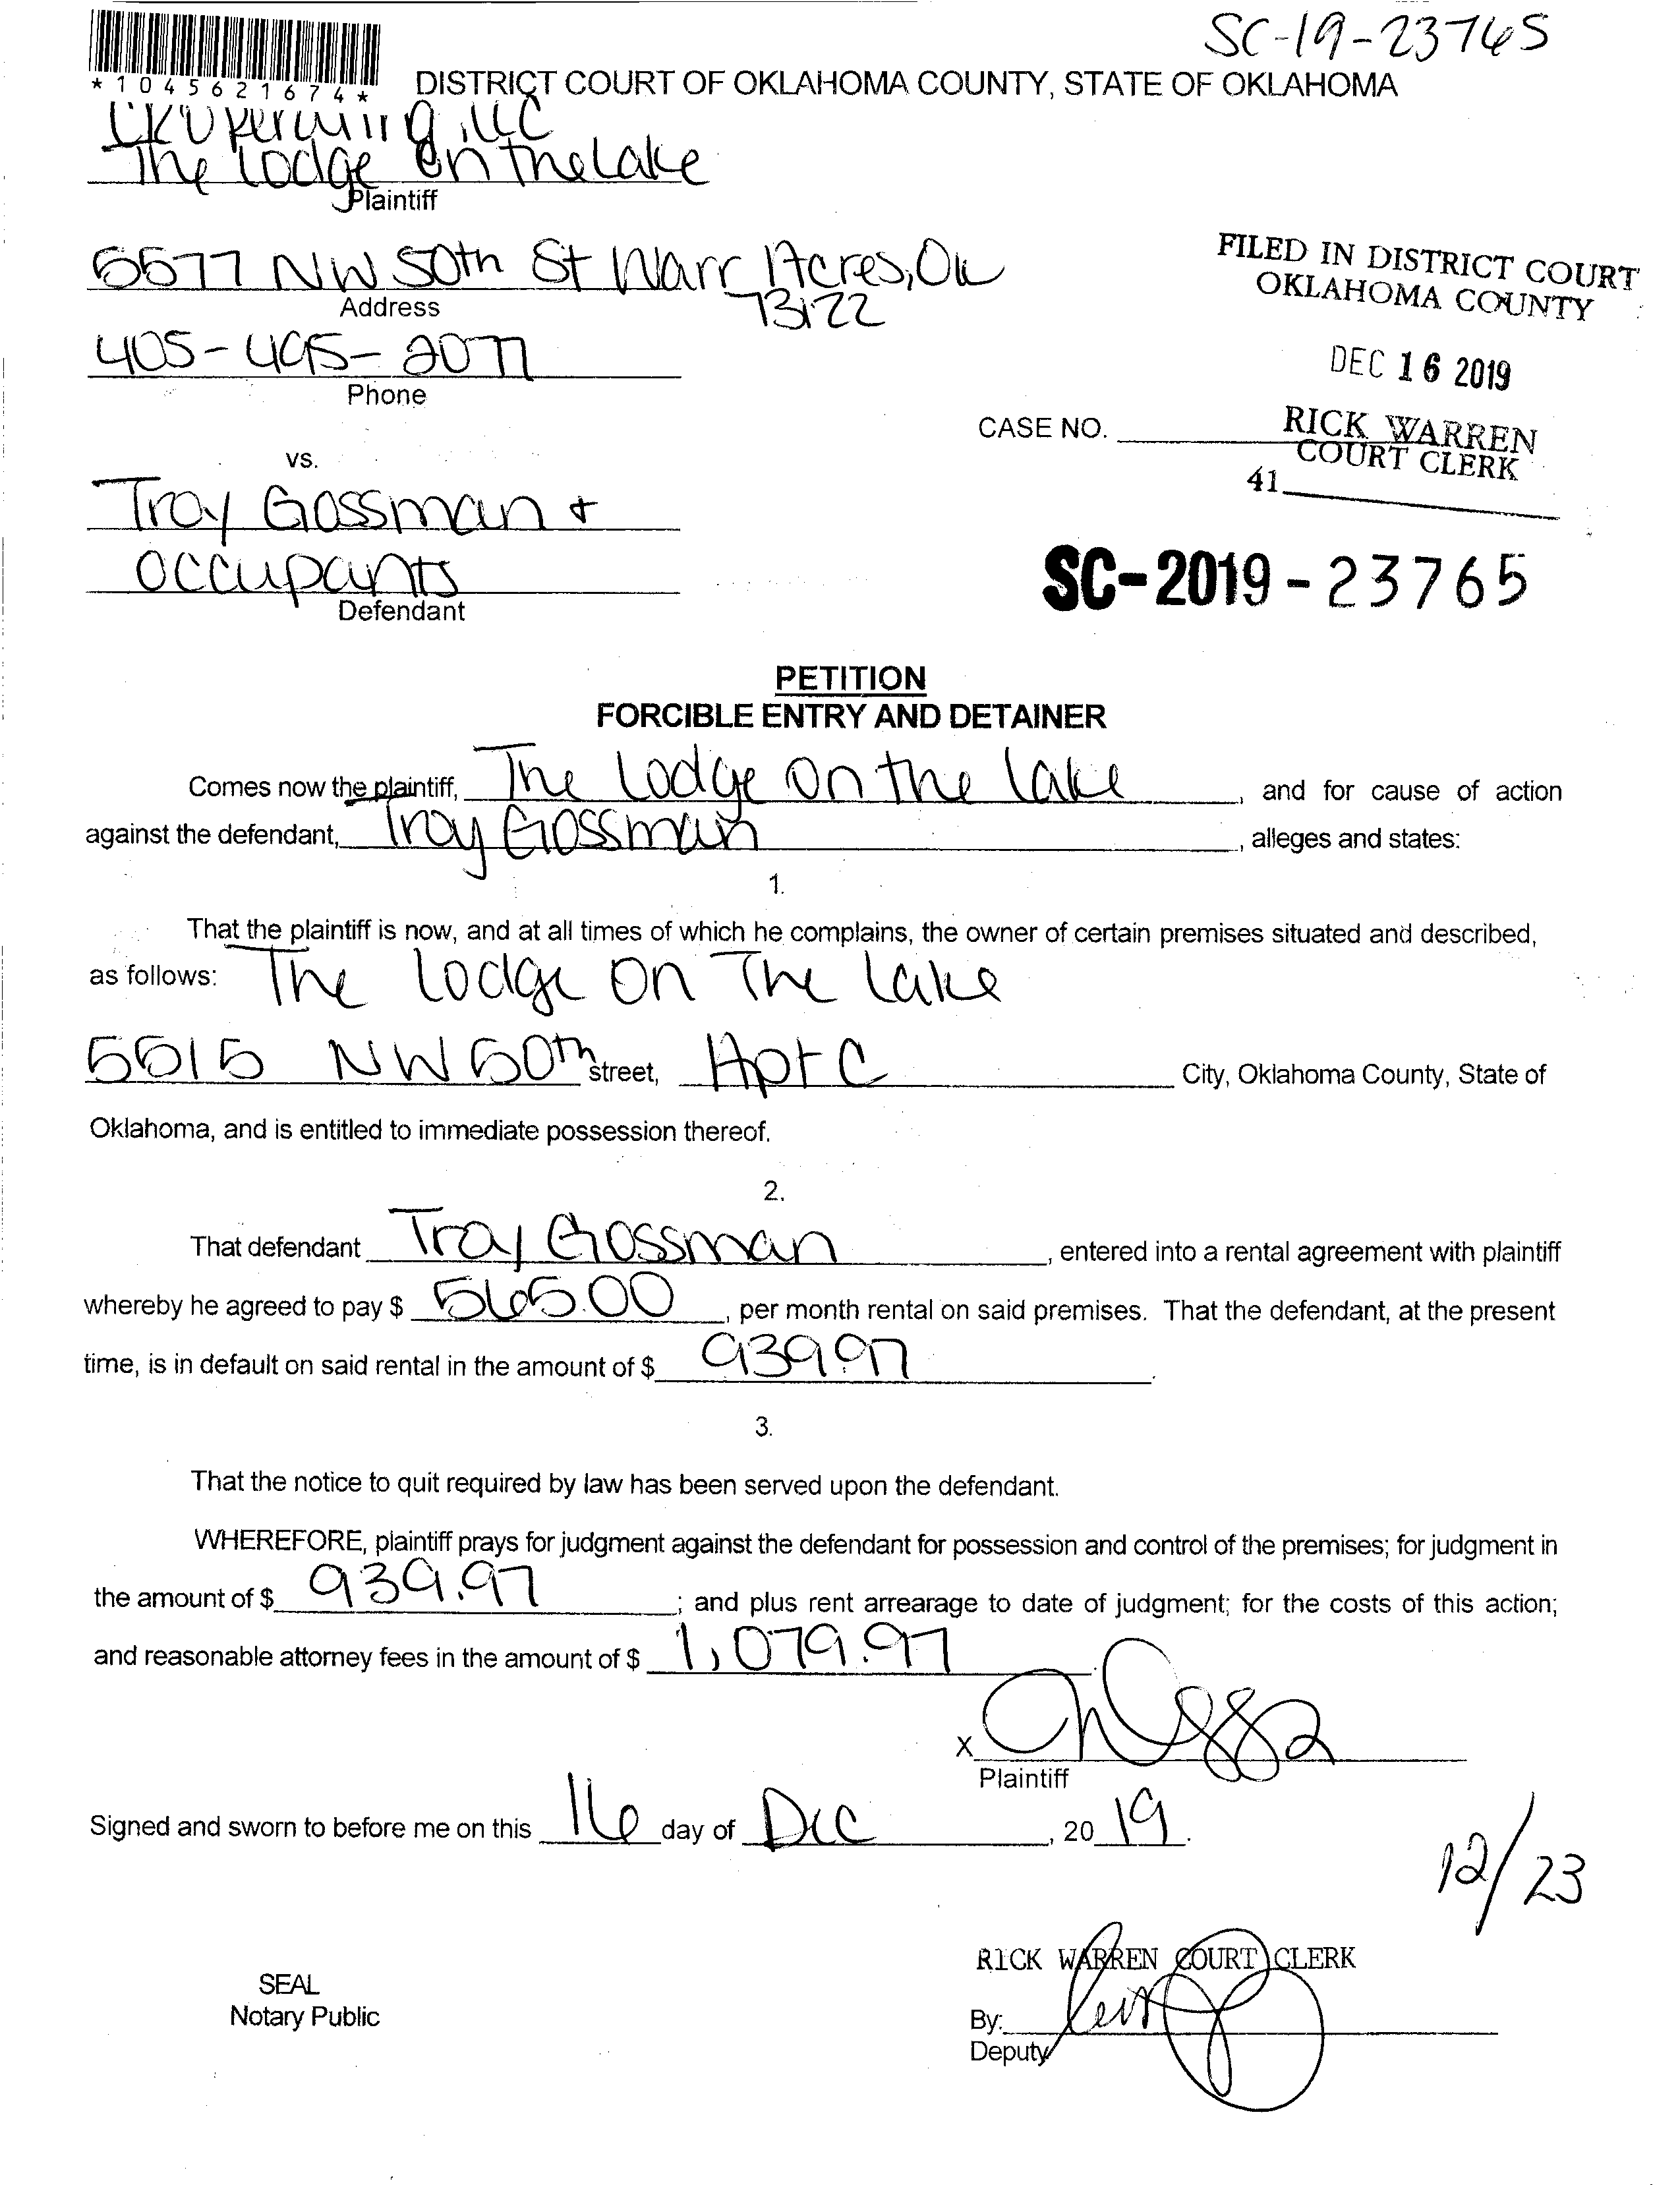 SC-19-23765
*1045621674*
DISTRICT COURT OF OKLAHOMA COUNTY, STATE OF OKLAHOMA
LLC
The Lodge On the Lake
Plaintiff
5577 NW 50th St Warr Acres, OK
73122
Address
405-495-2077
Phone
FILED IN DISTRICT COURT
OKLAHOMA COUNTY
DEC 16 2019
RICK WARREN
COURT CLERK
41
CASE NO.
vs.
Troy Gossman +
occupants
Defendant
SC-2019-23765
PETITION
FORCIBLE ENTRY AND DETAINER
Comes now the plaintiff, The Lodge On the Lake, and for cause of action
against the defendant, Troy Gossman, alleges and states:
1.
That the plaintiff is now, and at all times of which he complains, the owner of certain premises situated and described,
as follows: The Lodge On The Lake
5515 NW 50th street, Apt C City, Oklahoma County, State of
Oklahoma, and is entitled to immediate possession thereof.
2.
That defendant Troy Gossman, entered into a rental agreement with plaintiff
whereby he agreed to pay $ 565.00, per month rental on said premises. That the defendant, at the present
time, is in default on said rental in the amount of $ 939.97.
3.
That the notice to quit required by law has been served upon the defendant.
WHEREFORE, plaintiff prays for judgment against the defendant for possession and control of the premises; for judgment in
the amount of $ 939.97; and plus rent arrearage to date of judgment; for the costs of this action;
and reasonable attorney fees in the amount of $ 1,079.97.
X
Plaintiff
Signed and sworn to before me on this 16 day of Dec, 2019.
12/23
RICK WARREN COURT CLERK
SEAL
Notary Public
By:
Deputy